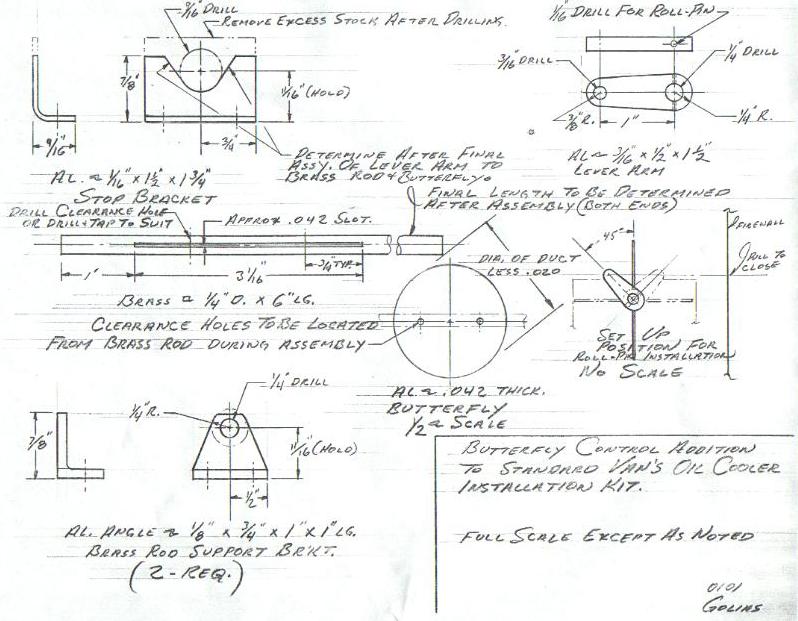 9/16" DRILL
REMOVE EXCESS STOCK AFTER DRILLING.
7/8"
11/16" (HOLD)
9/16"
3/4"
DETERMINE AFTER FINAL
ASSY. OF LEVER ARM TO
BRASS ROD & BUTTERFLY.
AL ~ 1/16" x 1 1/2" x 1 3/4"
STOP BRACKET
1/16" DRILL FOR ROLL-PIN
3/16" DRILL
1/4" DRILL
3/8" R.
1"
1/4" R.
AL ~ 3/16" x 1/2" x 1 1/2"
LEVER ARM
DRILL CLEARANCE HOLE
OR DRILL & TAP TO SUIT
APPROX .042 SLOT.
FINAL LENGTH TO BE DETERMINED
AFTER ASSEMBLY (BOTH ENDS)
3/4" TYP.
1"
3 1/16"
BRASS ~ 1/4" D. x 6" LG.
CLEARANCE HOLES TO BE LOCATED
FROM BRASS ROD DURING ASSEMBLY
DIA. OF DUCT
LESS .020
AL ~ .042 THICK.
BUTTERFLY
1/2 ~ SCALE
45°
FIREWALL
TO
CLOSE
SET UP
POSITION FOR
ROLL-PIN INSTALLATION
NO SCALE
7/8"
1/4" R.
1/4" DRILL
11/16" (HOLD)
1/2"
AL. ANGLE ~ 1/8" x 3/4" x 1" x 1" LG.
BRASS ROD SUPPORT BR'KT.
(2-REQ.)
BUTTERFLY CONTROL ADDITION
TO STANDARD VAN'S OIL COOLER
INSTALLATION KIT.
FULL SCALE EXCEPT AS NOTED
0101
GOLINS